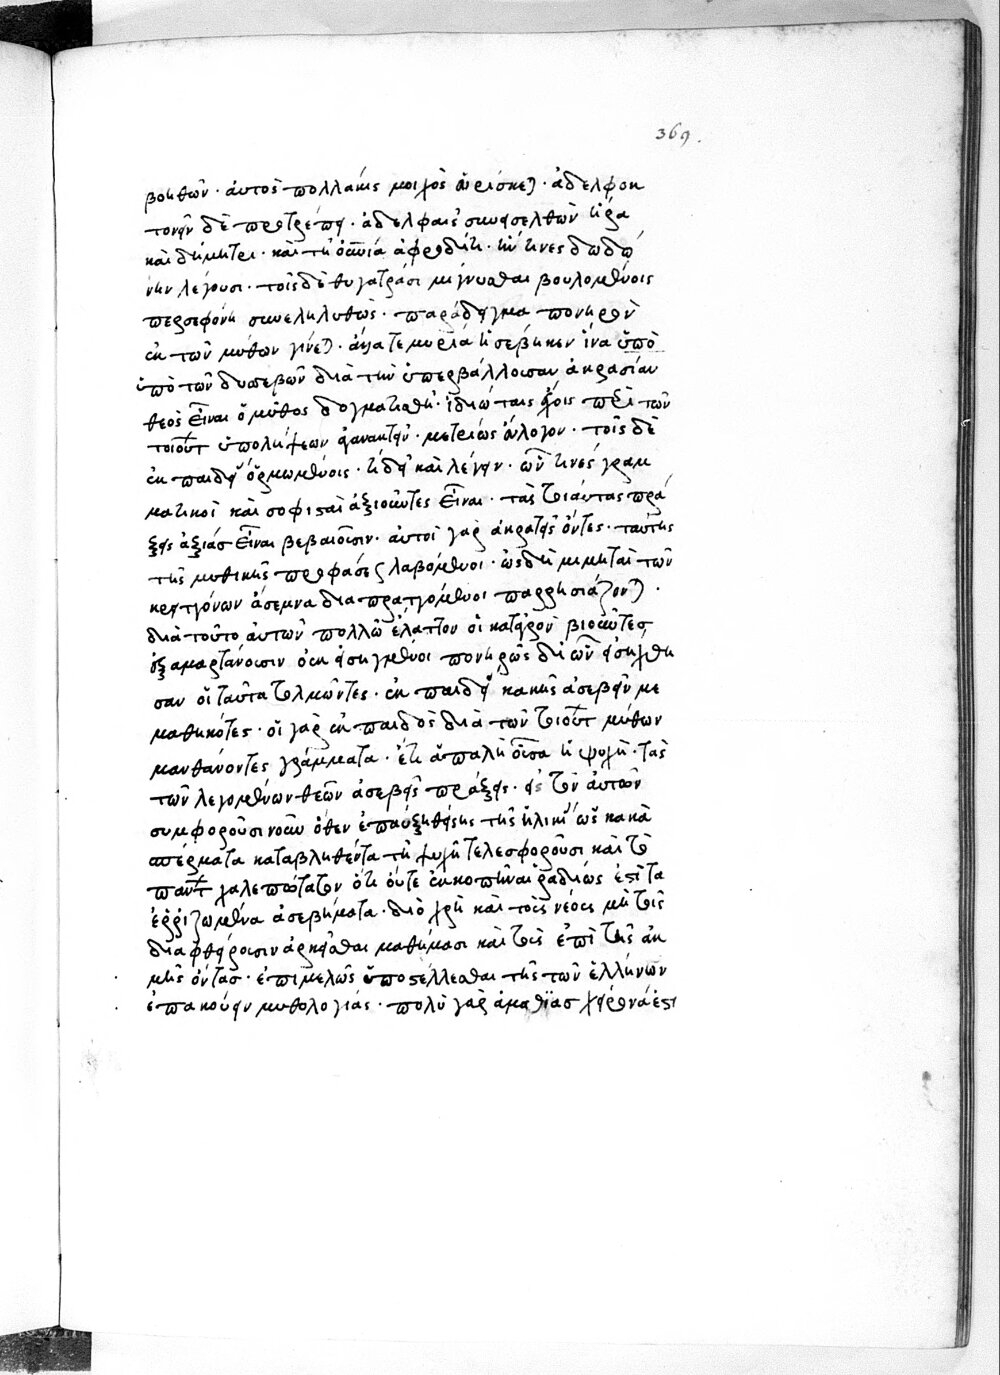 369.
βοηθῶν · αὐτὸς πολλάκις μοιχὸς εὑρίσκεται · ἀδελφοκ
τονεῖν δὲ προτρέπει · ἀδελφαῖς συνεισελθὼν ἥρα
καὶ δήμητρι · καὶ τῇ οὐρανίᾳ ἀφροδίτῃ · ἥν τινες δωδώ
νην λέγουσι · τοῖς δὲ θυγατράσι μίγνυσθαι βουλομένοις
περσεφόνη συνεληλυθὼς · παράδειγμα πονηρὸν
ἐκ τῶν μύθων γίνεται · ἄλλα τε μυρία ἠσέβηκεν ἵνα ὑπὸ
ὑπὸ τῶν δυσσεβῶν διὰ τὴν ὑπερβάλλουσαν ἀκρασίαν
θεὸς εἶναι ὁ μῦθος δογματισθῇ · ἰδιώταις ἀνθρώποις περὶ τῶν
τοιούτων ὑπολήψεων ἀγανακτεῖν · μετρίως εὔλογον · τοῖς δὲ
ἐκ παιδείας ὁρμωμένοις · τί δεῖ καὶ λέγειν · ὧν τινες γραμ
ματικοὶ καὶ σοφισταὶ ἀξιοῦντες εἶναι · τὰς τοιαύτας πρά
ξεις ἀξίας εἶναι βεβαιοῦσιν · αὐτοὶ γὰρ ἀκρατεῖς ὄντες · ταύτης
τῆς μυθικῆς προφάσεως λαβόμενοι · ὡς δὴ μιμηταὶ τῶν
κρειττόνων ἄσεμνα διαπραττόμενοι παρρησιάζονται ·
διὰ τοῦτο αὐτῶν πολλῷ ἔλαττον οἱ κατ' ἀγρὸν βιοῦντες
ἐξαμαρτάνουσιν οὐκ εἰσηγμένοι πονηρῶς δι ὧν εἰσήχθη
σαν οἱ ταῦτα τολμῶντες · ἐκ παιδείας κακῆς ἀσεβεῖν με
μαθηκότες · οἱ γὰρ ἐκ παιδὸς διὰ τῶν τοιούτων μύθων
μανθάνοντες γράμματα · ἔτι ἁπαλῆ οὖσα ἡ ψυχὴ · τὰς
τῶν λεγομένων θεῶν ἀσεβεῖς πράξεις · εἰς τὸν αὐτῶν
συμφοροῦσι νοῦν ὅθεν ἐπαυξηθείσης τῆς ἡλικίας ὡς κακὰ
σπέρματα καταβληθέντα τῇ ψυχῇ τελεσφοροῦσι καὶ τὸ
πάντων χαλεπώτατον ὅτι οὔτε ἐκκοπῆναι ῥαδίως ἐστὶ τὰ
ἐρριζωμένα ἀσεβήματα · διὸ χρὴ καὶ τοὺς νέους μὴ τοῖς
διαφθείρουσιν ἀρκεῖσθαι μαθήμασι καὶ τοὺς ἐπὶ τῆς ἀκ
μῆς ὄντας · ἐπιμελῶς ὑποστέλλεσθαι τῆς τῶν ἑλλήνων
ἐπακούειν μυθολογίας · πολὺ γὰρ ἀμαθίας χείρονά ἐστι